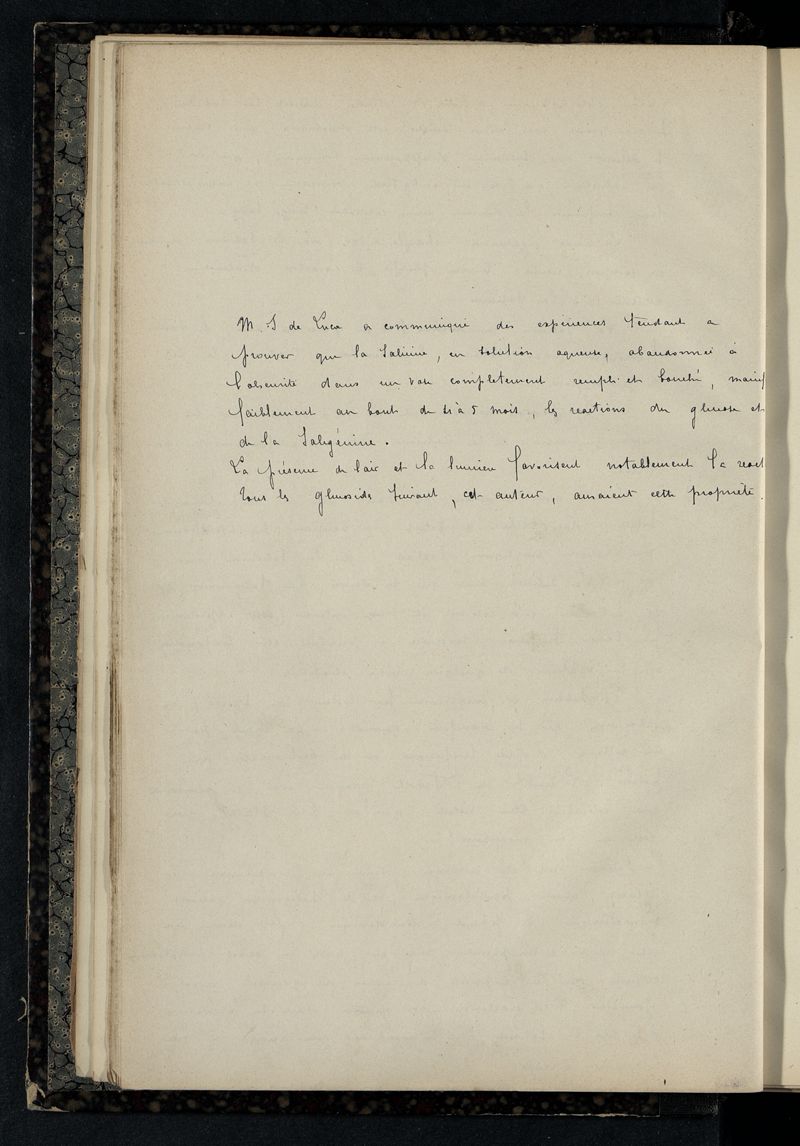 M. S de Luca a communiqué des expériences tendant a
prouver que la Salicine, en solution aqueuse, abandonnée à
l'obscurité dans un vase completement rempli et bouché,
faiblement au bout de 4 à 5 mois, les reactions du glucose et
de la Saligénine.
La présence de l'air et la lumière favorisent notablement la react
Tous les glucosides suivant, cet auteur, auraient cette propriété.